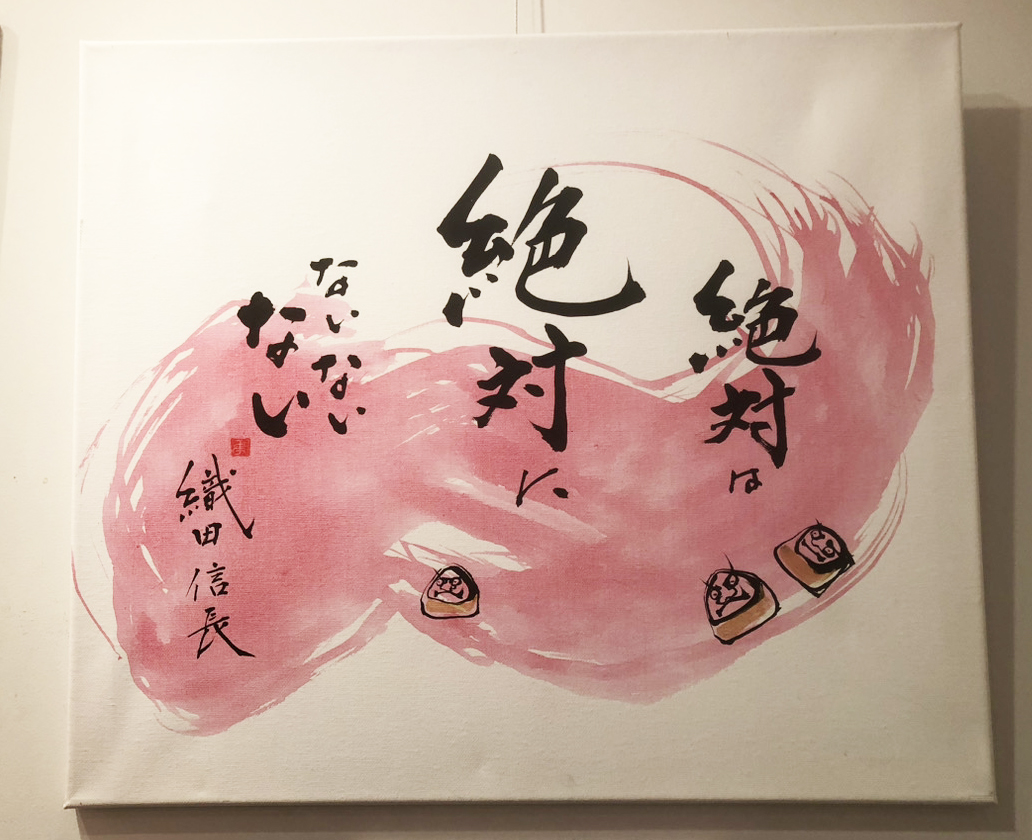 絶対は
絶対に
ないない
ない
織田信長